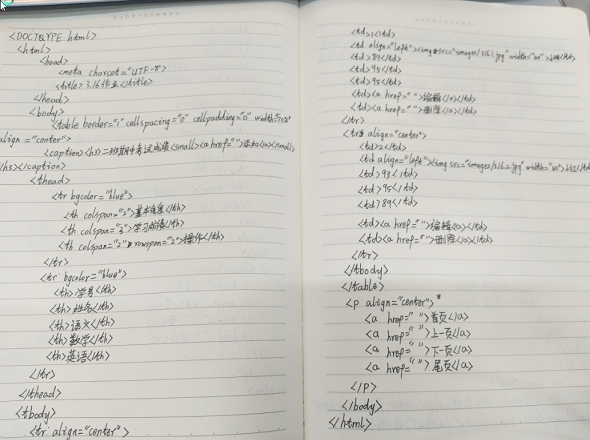 <DOCTYPE html>
<html>
<head>
<meta charset="UTF-8">
<title>3.16作业</title>
</head>
<body>
<table border="1" cellspacing="0" cellpadding="0" width=
align="center">
<caption><h3>二班期中考试成绩<small><a href="">添加</a></small>
</h3></caption>
<thead>
<tr bgcolor="blue">
<th colspan="2">基本信息</th>
<th colspan="3">学习成绩</th>
<th colspan="2" rowspan="2">操作</th>
</tr>
<tr bgcolor="blue">
<th>学号</th>
<th>姓名</th>
<th>语文</th>
<th>数学</th>
<th>英语</th>
</tr>
</thead>
<tbody>
<tr align="center">
<td>1</td>
<td align="left"><img src="images/3.16.1.jpg" width=
<td>89</td>
<td>95</td>
<td>95</td>
<td><a href="">编辑</a></td>
<td><a href="">删除</a></td>
</tr>
<tr align="center">
<td>2</td>
<td align="left"><img src="images/3.16.2.jpg" width=
<td>93</td>
<td>95</td>
<td>89</td>
<td><a href="">编辑</a></td>
<td><a href="">删除</a></td>
</tr>
</tbody>
</table>
<P align="center">
<a href="">首页</a>
<a href="">上一页</a>
<a href="">下一页</a>
<a href="">尾页</a>
</P>
</body>
</html>